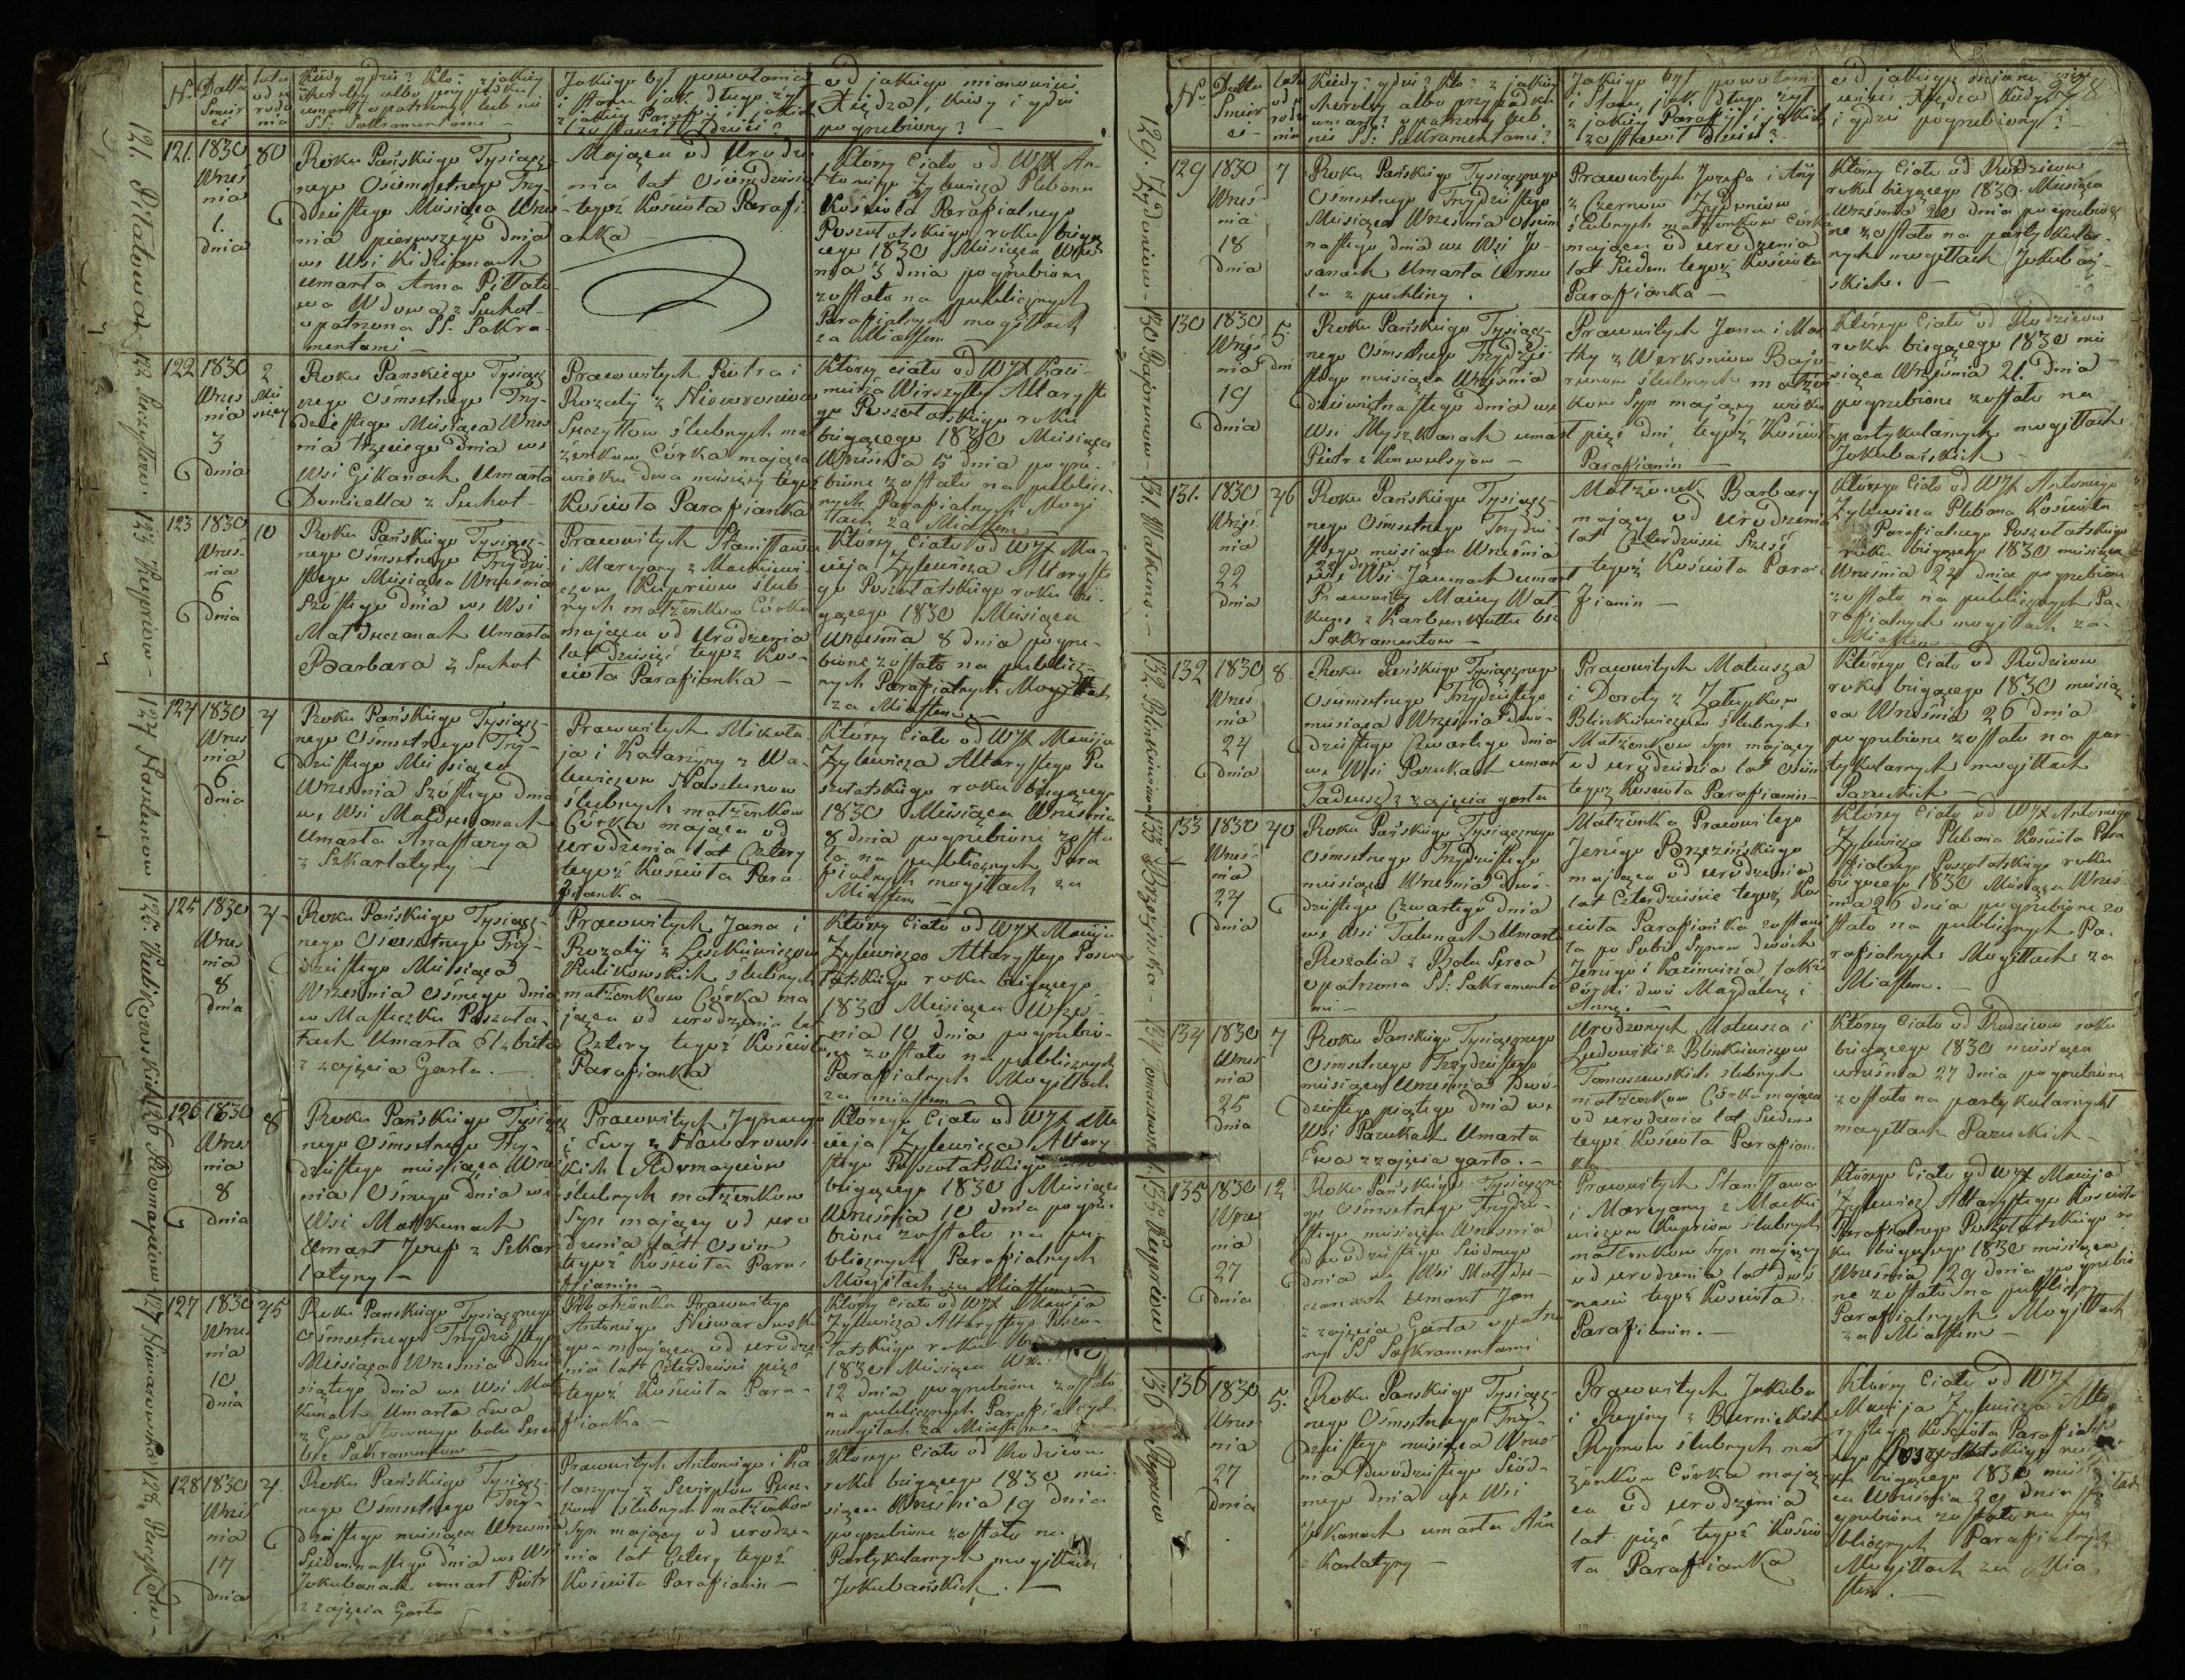 N.
Datta Śmierci
lata od urodzenia
Kiedy gdzie? Kto? z jakiej
choroby albo przypadku
umarł opatrzony lub nie
SS: Sakramentami —
Jakiego był powołania
i Stanu jak długo żył
z jakiej Parafij i jakie
zostawił dzieci?
od jakiego mianowicie
Xiędza, kiedy i gdzie
pogrzebiony? —
121. Pitatowa
121.
1830
Wrześ
nia
1.
dnia
80
Roku Pańskiego Tysiącz-
nego Ośmsetnego Trzy-
dziestego Miesiąca Wrześ
nia pierwszego dnia
we Wsi Kidzianach
umarła Anna Pittato-
wa Wdowa z Suchot
opatrzona SS. Sakra-
mentami —
Mająca od Urodze
nia lat Ośmdziesiąt
tegoż Kościoła Parafi
anka
Którey Ciało od WJX An-
toniego Zylewicza Plebana
Kościoła Parafialnego
Poszołatskiego roku bieżą
cego 1830 Miesiąca Wrześ
nia 3 dnia pogrzebione
zostało na publicznych
Parafialnych mogiłłach
za Miastem
122
1830
Wrześ
nia
3
dnia
2
Mie
sięcy
Roku Pańskiego Tysiącz
nego Ośmsetnego Trzy-
dziestego Miesiąca Wrześ
nia trzeciego dnia we
Wsi Gikanach Umarła
Domicella z Suchot
Prawowitych Piotra i
Rozalij z Niewiarowiczów
Suszyttow ślubnych mał
żonkow Córka mająca
wieku dwa miesięcy tegoż
Kościoła Parafianka
Którey ciało od WJX Kazi-
mierza Wirszyłły Altaryste
go Poszołatskiego roku
bieżącego 1830 Miesiąca
Września 5 dnia pogrze-
bione zostało na publicz-
nych Parafialnych Mogi
łłach za Miastem
123 Kupriow —
123
1830
Wrześ-
nia
6
dnia
10
Roku Pańskiego Tysiącz-
nego Ośmsetnego Trzydzie
stego Miesiąca Września
Szóstego dnia we Wsi
Małduczanach Umarła
Barbara z Suchot
Prawowitych Stanisława
i Maryany z Maćkiewi-
czow Kupriow ślub-
nych małżonkow Córka
mająca od Urodzenia
lat dziesięć tegoż Koś-
cioła Parafianka —
Którey Ciało od WJX Ma-
cieja Zylewicza Altaryste
go Poszołatskiego roku bie-
żącego 1830 Miesiąca
Września 8 dnia pogrze-
bione zostało na publicz-
nych Parafialnych Mogiłłach
za Miastem —
124 Haszlunow
124
1830
Wrześ
nia
6
dnia
4
Roku Pańskiego Tysiącz-
nego Ośmsetnego Trzy-
dziestego Miesiąca
Września Szóstego dnia
we Wsi Małduczanach
Umarła Anastazya
z Szkarlatyny —
Prawowitych Mikoła
ja i Katarzyny z Wa-
lewiczow Haszlunow
ślubnych małżonkow
Córka mająca od
urodzenia lat Cztery
tegoż Kościoła Para-
fianka —
Którey Ciało od WJX Macieja
Zylewicza Altarystego Po
szołatskiego roku bieżącego
1830 Miesiąca Września
8 dnia pogrzebione zosta
ło na publicznych Para
fialnych mogiłłach za
Miastem —
125. Kulikowskich
125
1830
Wrześ
nia
8
dnia
4-
Roku Pańskiego Tysiącz-
nego Ośmsetnego Trzy-
dziestego Miesiąca
Września Ośmego dnia
w Miasteczku Poszoła-
tach Umarła Elżbieta
z zajęcia Garła. —
Prawowitych Jana i
Rozalij z Leszkiewiczow
Kulikowskich ślubnych
małżonkow Córka ma
jąca od urodzenia lat
Cztery tegoż Kościoła
Parafianka
Którey Ciało od WJX Macieja
Zylewicza Altarystego Poszo
łatskiego roku bieżącego
1830 Miesiąca Wrześ-
nia 10 dnia pogrzebio-
ne zostało na publicznych
Parafialnych Mogiłłach
za miastem
126 Adomayciow
126
1830
Wrześ
nia
8
dnia
8
Roku Pańskiego Tysiącz
nego Ośmsetnego Trzy-
dziestego miesiąca Wrześ
nia Ośmego dnia we
Wsi Matkunach
Umarł Józef z Szkar
latyny —
Prawowitych Ignacego
i Ewy z Naworows-
kich Adomayciow
ślubnych małżonkow
Syn mający od uro
dzenia lat Ośm
tegoż Kościoła Para-
fianin —
Którego Ciało od WJX Ma
cieja Zylewicza Altary
stego Poszołatskiego
bieżącego 1830 Miesiąca
Września 10 dnia pogrze-
bione zostało na pu-
blicznych Parafialnych
Mogiłłach za Miastem
127 Niewiarowska
127
1830
Wrześ
nia
10
dnia
45
Roku Pańskiego Tysiącznego
Ośmsetnego Trzydziestego
Miesiąca Września dzie
siątego dnia we Wsi Mat
kunach Umarła Ewa
z Gwałtownego bolu Serca
bez Sakramentow —
Małżonka Prawowitego
Antoniego Niewiarowskie
go mająca od urodze-
nia lat Czterdzieści pięć
tegoż Kościoła Para-
fianka —
Którey Ciało od WJX Macieja
Zylewicza Altarystego Poszo-
łatskiego roku
1830 Miesiąca
12 dnia pogrzebione zostało
na publicznych Parafialnych
mogiłach za Miastem —
128
1830
Wrześ
nia
17
dnia
4.
Roku Pańskiego Tysiącz-
nego Ośmsetnego Trzy-
dziestego miesiąca Września
Siedmnastego dnia we Wsi
Jokubanach umarł Piotr
z zajęcia Garła —
Prawowitych Antoniego i Ka
tarzyny z
ślubnych małżonkow
Syn mający od urodze-
nia lat Cztery tegoż
Kościoła Parafianin —
Którego Ciało od Rodziców
roku bieżącego 1830 mie-
siąca Września 19 dnia
pogrzebione zostało na
Partykularnych mogiłłach
Jokubańskich. —
278
N.
Datta Śmierci —
lata od urodzenia
Kiedy? gdzie? Kto? z jakiej
choroby albo przypadku
umarł? opatrzony lub
nie SS: Sakramentami?
Jakiego był powołania
i Stanu, jak długo żył
z jakiej Parafij i jakie
zostawił dzieci?
od jakiego miano-
wicie Xiędza kiedy
i gdzie pogrzebiony?
129. Zydoniow —
129
1830
Wrześ-
nia
18
dnia
7
Roku Pańskiego Tysiącznego
Ośmsetnego Trzydziestego
Miesiąca Września Ośm
nastego dnia we Wsi Jo-
sanach Umarła Urszu
la z puchliny.
Prawowitych Józefa i Anny
z Czernow Zydoniow
ślubnych małżonkow Córka
mająca od urodzenia
lat Siedem tegoż Kościoła
Parafianka —
Którey Ciało od Rodziców
roku bieżącego 1830 Miesiąca
Września 20 dnia pogrzebio
ne zostało na partykular-
nych mogiłłach Jokubań-
skich. —
130 Bajorunow —
130
1830
Wrześ
nia
19
dnia
5
dni
Roku Pańskiego Tysiącz-
nego Ośmsetnego Trzydzie
stego miesiąca Września
dziewiętnastego dnia we
Wsi Myszkanach umarł
Piotr z Konwulsyow —
Prawowitych Jana i Mar
thy z Werksniow Bajo-
runow ślubnych małżon
kow Syn mający wieku
pięć dni tegoż Kościoła
Parafianin —
Którego Ciało od Rodziców
roku bieżącego 1830 mie
siąca Września 21. dnia
pogrzebione zostało na
partykularnych mogiłłach
Jokubańskich —
131 Matkuns. —
131.
1830
Wrześ
nia
22
dnia
46
Roku Pańskiego Tysiącz-
nego Ośmsetnego Trzydzie-
stego miesiąca Września
22 dnia
we Wsi Jaunach umarł
Prawowity Maciey Mat
kuns z Karbunkułłu bez
Sakramentow —
Małżonek Barbary
mający od Urodzenia
lat Czterdzieści Sześć
tegoż Kościoła Para-
fianin —
Którego Ciało od WJX Antoniego
Zylewicza Plebana Kościoła
Parafialnego Poszołatskiego
roku bieżącego 1830 miesiąca
Września 24 dnia pogrzebione
zostało na publicznych Pa-
rafialnych mogiłach za
Miastem —
132
1830
Wrześ
nia
24
dnia
8
Roku Pańskiego Tysiącznego
Ośmsetnego Trzydziestego
miesiąca Września dwu-
dziestego Czwartego dnia
we Wsi Pazukach umarł
Tadeusz z zajęcia garła
Prawowitych Mateusza
i Doroty z Załuskow
Blinkiewiczow ślubnych
Małżonkow Syn mający
od urodzenia lat Ośm
tegoż Kościoła Parafianin —
Którego Ciało od Rodziców
roku bieżącego 1830 miesią
ca Września 26 dnia
pogrzebione zostało na par-
tykularnych mogiłłach
Pazuckich —
133 Brzezińska —
133
1830
Wrześ-
nia
24
dnia
40
Roku Pańskiego Tysiącznego
Ośmsetnego Trzydziestego
miesiąca Września dwu-
dziestego Czwartego dnia
we Wsi Talunach Umarła
Rozalia z Bolu Serca
opatrzona SS: Sakramenta
mi —
Małżonka Prawowitego
Jerzego Brzezińskiego
mająca od urodzenia
lat Czterdzieście tegoż Koś
cioła Parafianka zostawi
ła po Sobie Synow dwóch
Jerzego i Kazimierza, także
Córki dwie Magdalenę i
Annę. —
Którey Ciało od WJX Antoniego
Zylewicza Plebana Kościoła Para
fialnego Poszołatskiego roku
bieżącego 1830 Miesiąca Wrześ-
nia 26 dnia pogrzebione zo
stało na publicznych Pa-
rafialnych Mogiłłach za
Miastem. —
134
1830
Wrześ
nia
25
dnia
7
Roku Pańskiego Tysiącznego
Ośmsetnego Trzydziestego
miesiąca Września Dwu-
dziestego piątego dnia we
Wsi Pazukach Umarła
Ewa z zajęcia garła. —
Urodzonych Mateusza i
Ludowiki z Blinkiewiczow
Tomaszewskich ślubnych
małżonkow Córka mająca
od urodzenia lat Siedem
tegoż Kościoła Parafian-
ka
Którey Ciało od Rodziców roku
bieżącego 1830 miesiąca
września 27 dnia pogrzebione
zostało na partykularnych
mogiłłach Pazuckich —
135 Kupriow —
135
1830
Wrześ
nia
27
dnia
12
Roku Pańskiego Tysiączne
go Ośmsetnego Trzydzie-
stego miesiąca Września
dwudziestego Siódmego
dnia we Wsi Małdu-
czanach Umarł Jan
z zajęcia Garła opatrzo
ny SS Sakramentami
Prawowitych Stanisława
i Maryany z Maćkie
wiczow Kupriow ślubnych
małżonkow Syn mający
od urodzenia lat dwa
naście tegoż Kościoła
Parafianin. —
Którego Ciało od WJX Macieja
Zylewicz Altarystego Kościoła
Parafialnego Poszołatskiego ro
ku bieżącego 1830 miesiąca
Września 29 dnia pogrzebio
ne zostało na publiczny
Parafialnych Mogiłłach
za Miastem —
136 Rymow
136
1830
Wrześ-
nia
27
dnia
5.
Roku Pańskiego Tysiącz-
nego Ośmsetnego Trzy-
dziestego miesiąca Wrześ
nia Dwudziestego Siód-
mego dnia we Wsi
umarła Anna
z Karlatyny —
Prawowitych Jakuba
i Reginy z Biernackich
Rymow ślubnych mał
żonkow Córka mają
ca od urodzenia
lat pięć tegoż Kościo
ła Parafianka
Którey Ciało od WJX
Macieja Zylewicza Alta
rystego Kościoła Parafial
nego Poszołatskiego ro
ku bieżącego 1830 miesią
ca Września 29 dnia po
grzebione zostało na pu
blicznych Parafialnych
Mogiłłach za Mia-
stem. —